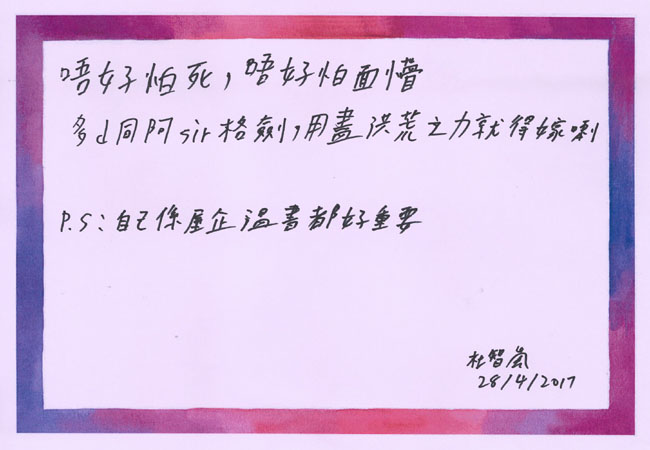 唔好怕死，唔好怕面懵
多d同阿sir格劍，用盡洪荒之力就得嫁喇
P.S：自己係屋企温書都好重要
杜智嵐
28/4/2017